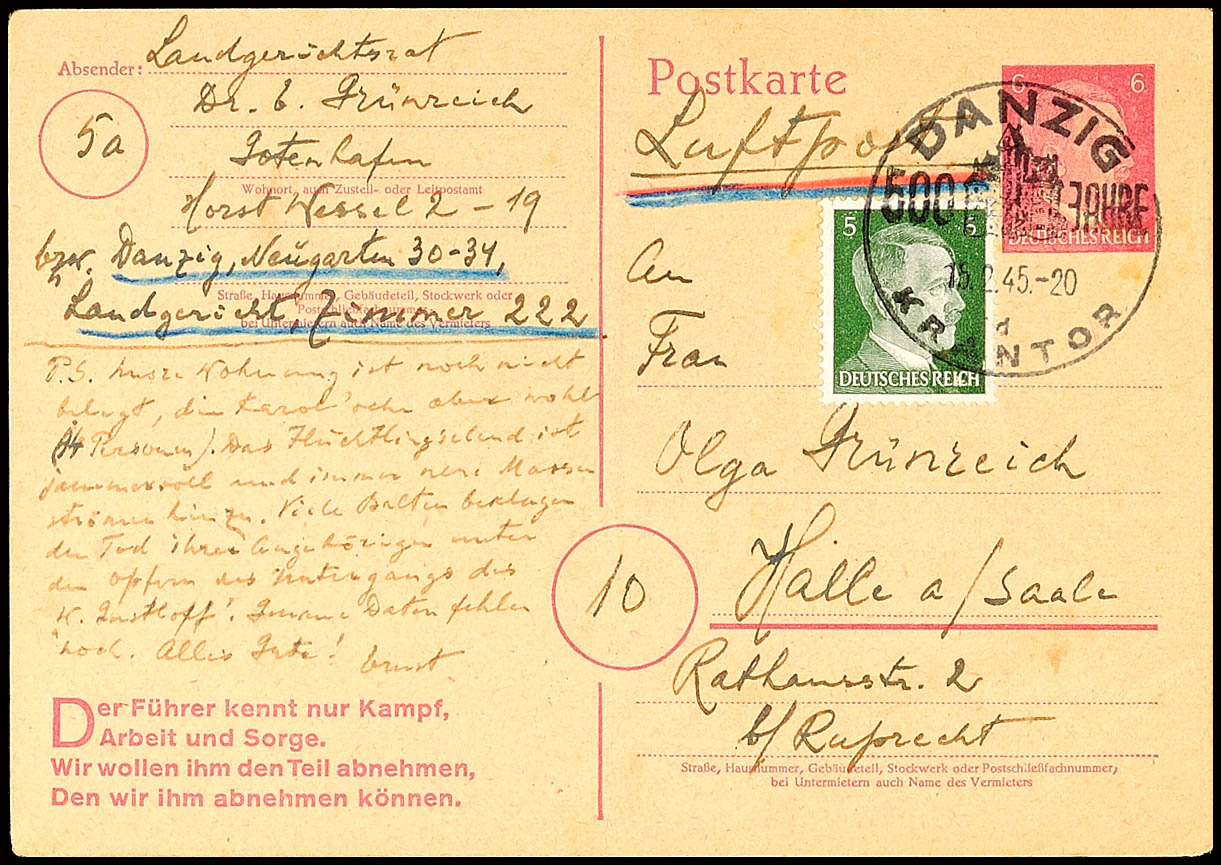 Absender: Landgerichtsrat
Dr. E. Grünreich
5a
Gotenhafen
Wohnort, auch Zustell- oder Leitpostamt
Horst Wessel 2 - 19
bzw. Danzig, Neugarten 30-34,
Straße, Hausnummer, Gebäudeteil, Stockwerk oder
Postschließfachnummer;
Landgericht, Zimmer 222
bei Untermietern auch Name des Vermieters
P.S. Unsre Wohnung ist noch nicht
belegt, die aber wohl
Personen). Das Flüchtlingselend ist
jammervoll und immer neue Massen
strömen hinzu. Viele Balten beklagen
den Tod ihrer Angehörigen unter
den Opfern des Untergangs des
W. Gustloff! Genaue Daten fehlen
noch. Alles Gute! Ernst
Der Führer kennt nur Kampf,
Arbeit und Sorge.
Wir wollen ihm den Teil abnehmen,
Den wir ihm abnehmen können.
Postkarte
Luftpost
6 6
DEUTSCHES REICH
5 5
DEUTSCHES REICH
DANZIG
500 JAHRE
15.2.45.-20
d
KRANTOR
An
Frau
Olga Grünreich
10
Halle a/Saale
Rathausstr. 2
b/ Ruprecht
Straße, Hausnummer, Gebäudeteil, Stockwerk oder Postschließfachnummer;
bei Untermietern auch Name des Vermieters